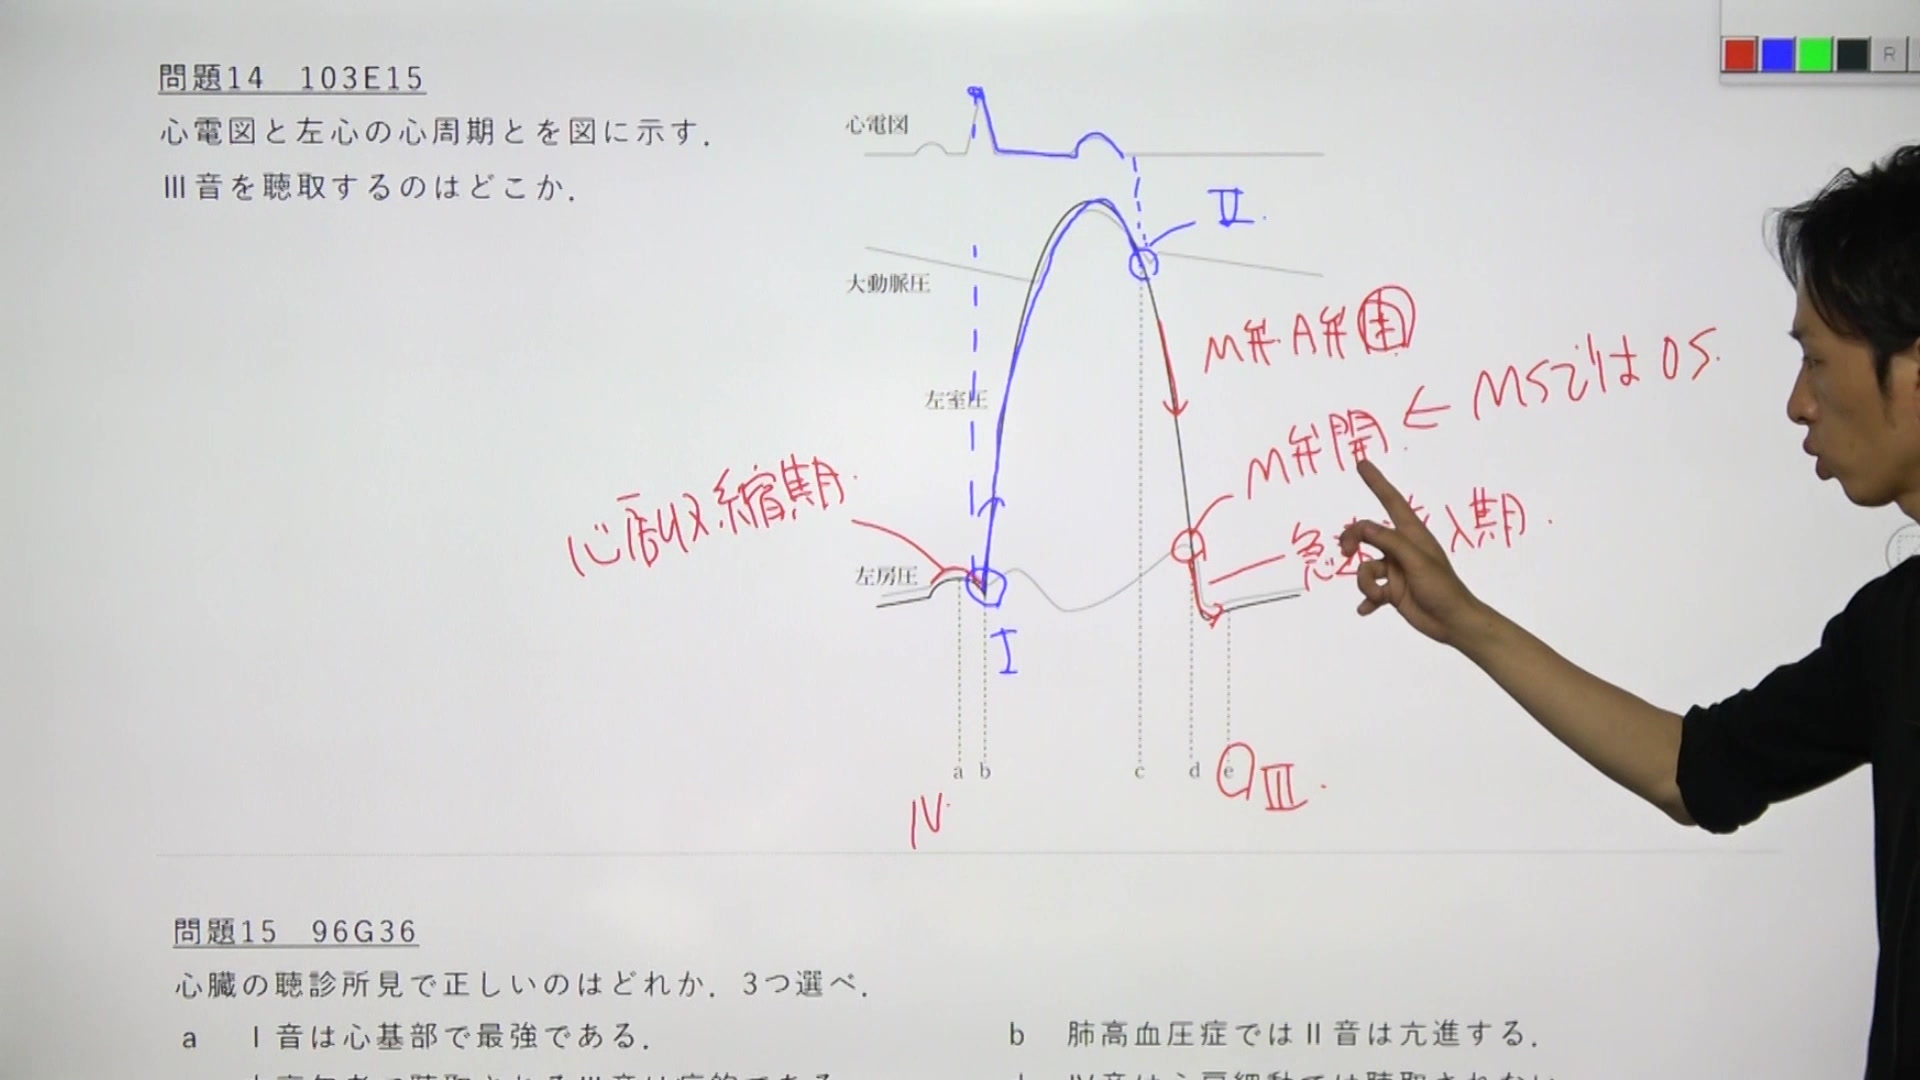 問題14 103E15
心電図と左心の心周期とを図に示す.
Ⅲ音を聴取するのはどこか.
心電図
大動脈圧
左室圧
左房圧
Ⅱ.
M弁.A弁閉
M弁開 ← MSではOS.
心房収縮期.
急 入期.
Ⅰ
a b c d e
Ⅳ.
Ⅲ.
R
問題15 96G36
心臓の聴診所見で正しいのはどれか. 3つ選べ.
a Ⅰ音は心基部で最強である.
b 肺高血圧症ではⅡ音は亢進する.